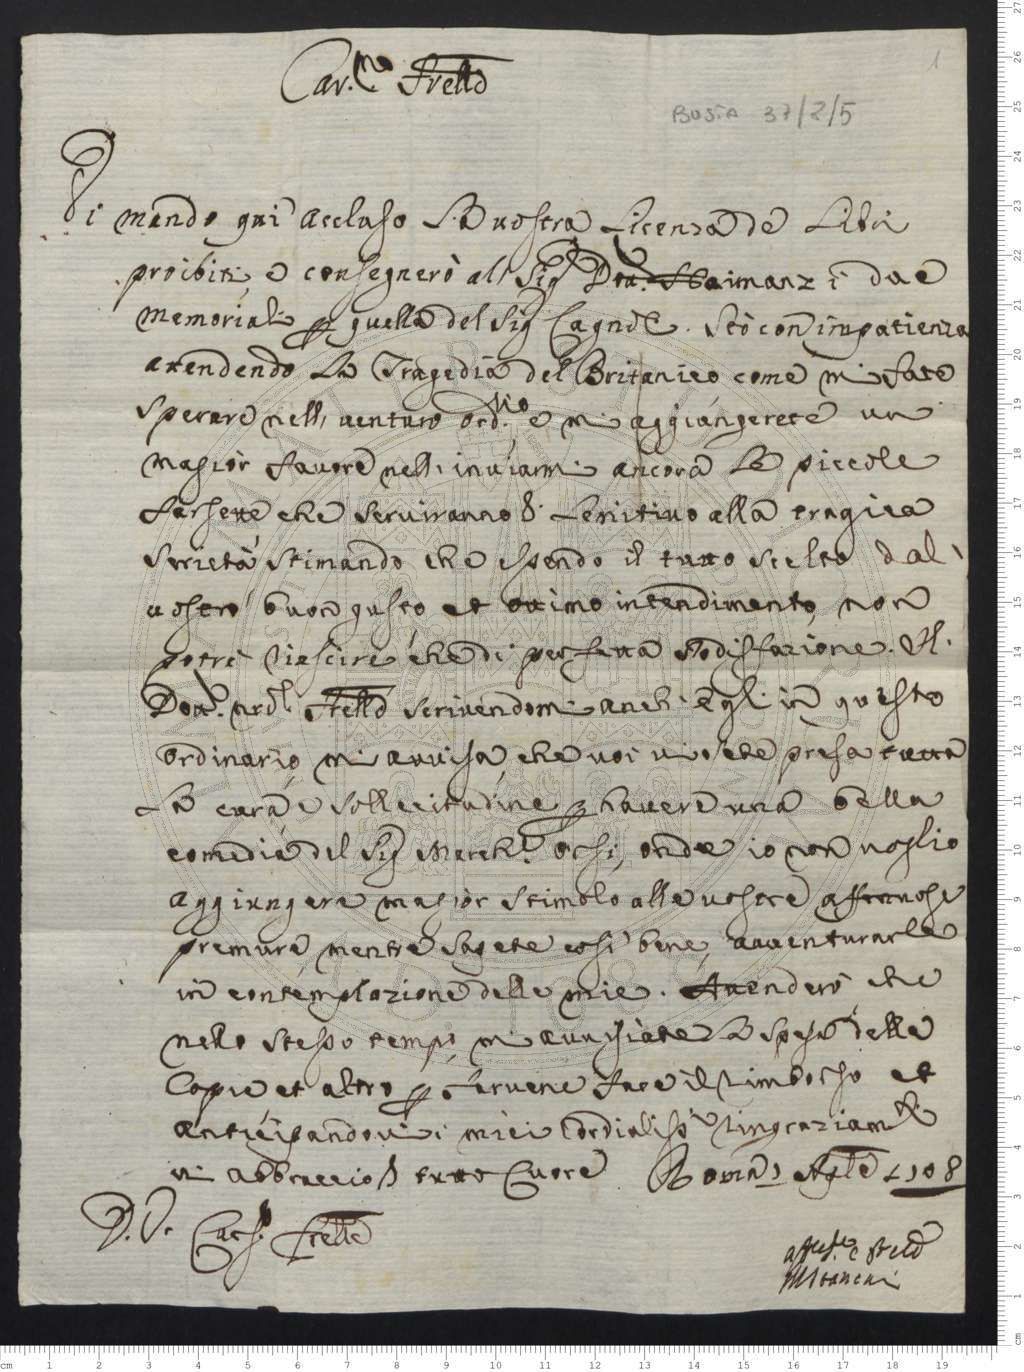 Car.mo Frello
1
BUSTA 37/2/5
Vi mando qui accluso La vostra Licenza de Libri
proibiti, e consegnerò al Sig.r Dott. i due
memoriali per quella del Sig.r Stò con impatienza
attendendo La Tragedia del Britanico come mi fate
sperare nell venturo ord.rio e mi aggiungerete un
magior favore nell inviarmi ancora Le piccole
farsette che serviranno di Lenitivo alla tragica
serietà stimando che essendo il tutto scelto dal
vostro buon gusto et ottimo intendimento, non
potrà riescire che di perfetta sodisfazione. Il
Dott. nro Frello scrivendomi anch Egli in questo
ordinario, mi avvisa, che voi vi siete presa tutta
La cura e sollecitudine per havere una bella
comedia del Sig.r March.e Osi, onde io non voglio
aggiungere magior stimolo alle vostre affettuose
premure mentre sapete così bene, avventurarle
in contemplazione delle mie. Attenderò che
nello stesso tempo mi avvisiate La spesa delle
Copie et altro per farvene fare il rimborso et
anticipandovi i miei cordialiss.i ringraziam.ti
vi abbraccio di tutto Cuore Roma 1708
D. V. Car.mo Frello
aff.mo e Frello